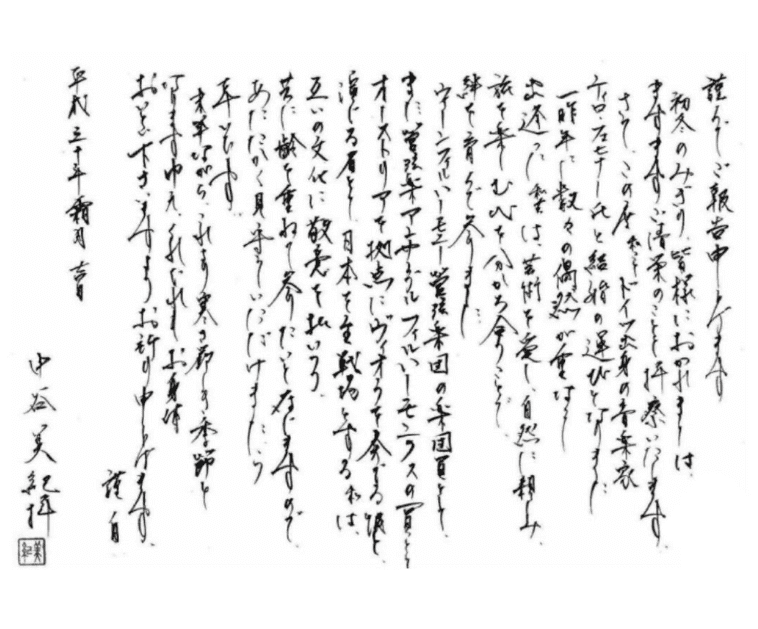 謹んでご報告申し上げます
初冬のみぎり、皆様におかれましては、
ますますご清栄のことと拝察いたします。
さて、この度私ことドイツ出身の音楽家
ティロ・フェヒナー氏と結婚の運びとなりました。
一昨年に数々の偶然が重なり
出逢った私達は、芸術を愛し、自然に親しみ、
旅を楽しむ心を分かち合うことで
絆を育んで参りました。
ウィーンフィルハーモニー管弦楽団の楽団員として、
また、管弦楽アンサンブル フィルハーモニクスの一員として
オーストリアを拠点にヴィオラを奏でる彼と、
演じる者として、日本を主戦場とする私は、
互いの文化に敬意を払いつつ、
共に齢を重ねて参りたいと存じますので、
あたたかく見守っていただけましたら
幸いです。
末筆ながら、これより寒さ厳しき季節と
なりますゆえ、くれぐれもお身体
おいといくださいますようお祈り申し上げます。
謹白
平成三十年霜月吉日
中谷美紀拝
美紀